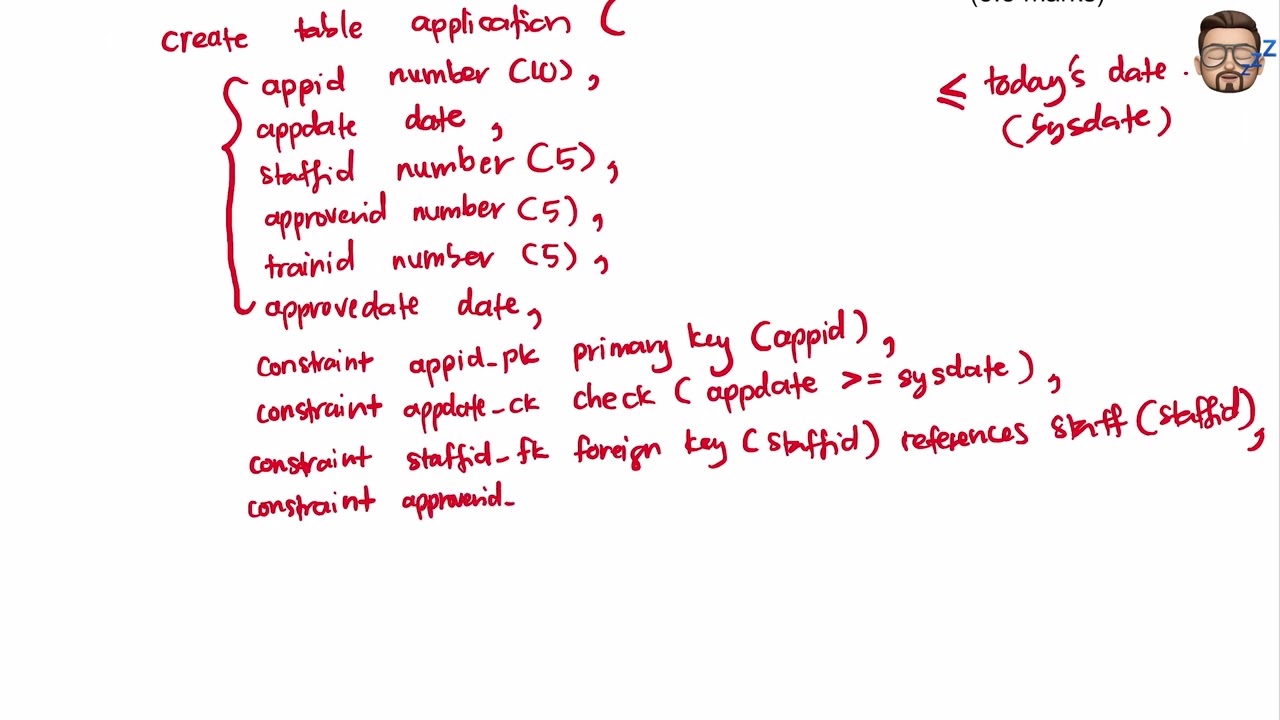 (6.0 marks)
create table application (
appid number (10),
appdate date,
staffid number (5),
approverid number (5),
trainid number (5),
approvedate date,
constraint appid_pk primary key (appid),
constraint appdate_ck check ( appdate >= sysdate ),
constraint staffid_fk foreign key (staffid) references staff (staffid),
constraint approverid_
≤ today's date.
(sysdate)
zzz